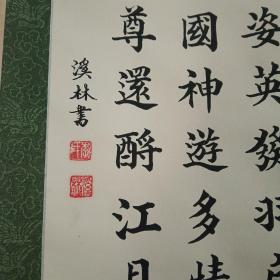 姿英發羽
國神遊多情
尊還酹江月
溪林書